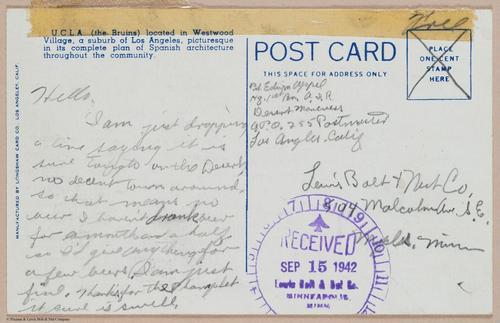 U.C.L.A. (the Bruins) located in Westwood
Village, a suburb of Los Angeles, picturesque
in its complete plan of Spanish architecture
throughout the community.
MANUFACTURED BY LONGSHAW CARD CO. LOS ANGELES, CALIF.
Hello,
I am just dropping
a line saying it is
sure tough on the Desert
no decent town around,
so that means no
beer I haven't drank beer
for a month and a half
so I'd give anything for
a few beers. I am just
fine. Thanks for the
it sure is swell.
POST CARD
THIS SPACE FOR ADDRESS ONLY
Free
PLACE
ONE CENT
STAMP
HERE
Edwin Appel
Desert Maneuvers
A.P.O. 255 Postmaster
Los Angles. Calif
Lewis Bolt & Nut Co,
Malcolm Av. S.E.
Minn
RECEIVED
SEP 15 1942
Lewis Bolt & Nut Co.
MINNEAPOLIS,
MINN